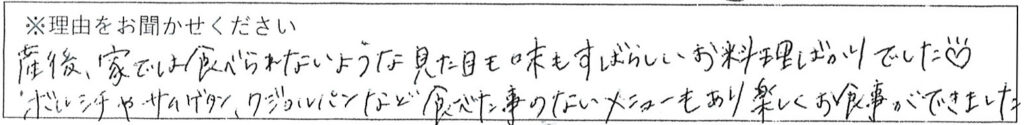 ※理由をお聞かせください
産後、家では食べられないような見た目も味もすばらしいお料理ばかりでした♡
ボルシチやサムゲタン、クジョルパンなど食べた事のないメニューもあり楽しくお食事ができました